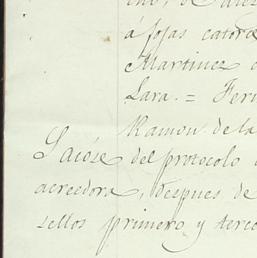 á fojas cator
Martinez
Lara. = Fer
Ramon de la
Sacóse del protocolo
acreedora, despues de
sellos primero y terce